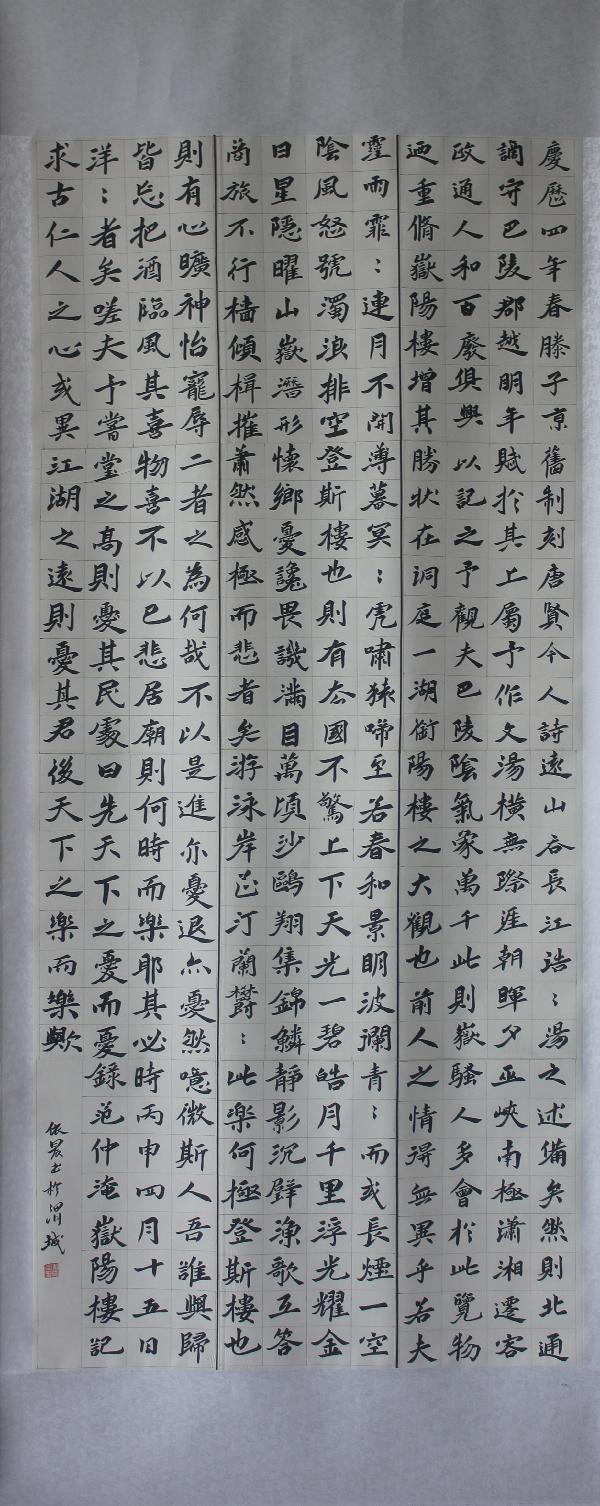 慶曆四年春滕子京
謫守巴陵郡越明年
政通人和百廢俱興
迺重脩嶽陽樓增其
舊制刻唐賢今人詩
賦於其上屬予作文
以記之予觀夫巴陵
勝狀在洞庭一湖銜
遠山吞長江浩:湯
湯橫無際涯朝暉夕
陰氣象萬千此則嶽
陽樓之大觀也前人
之述備矣然則北通
巫峽南極瀟湘遷客
騷人多會於此覽物
之情得無異乎若夫
霪雨霏:連月不開
陰風怒號濁浪排空
日星隱曜山嶽潛形
商旅不行檣傾楫摧
薄暮冥:虎嘯猿啼
登斯樓也則有去國
懷鄉憂讒畏譏滿目
蕭然感極而悲者矣
至若春和景明波瀾
不驚上下天光一碧
萬頃沙鷗翔集錦鱗
游泳岸芷汀蘭欝:
青:而或長煙一空
皓月千里浮光耀金
靜影沉璧漁歌互答
此樂何極登斯樓也
則有心曠神怡寵辱
皆忘把酒臨風其喜
洋:者矣嗟夫予嘗
求古仁人之心或異
二者之為何哉不以
物喜不以己悲居廟
堂之高則憂其民處
江湖之遠則憂其君
是進亦憂退亦憂然
則何時而樂耶其必
曰先天下之憂而憂
後天下之樂而樂歟
噫微斯人吾誰與歸
時丙申四月十五日
錄范仲淹嶽陽樓記
书於渭城